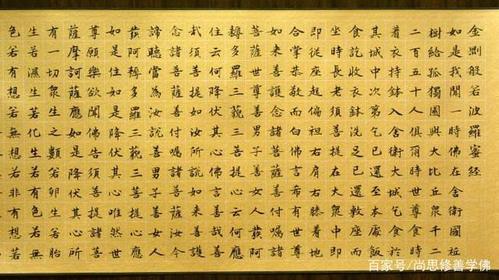 金剛般若波羅蜜經
如是我聞一時佛在舍衛國祇
樹給孤獨園與大比丘眾千二
百五十人俱爾時世尊食時
着衣持鉢入舍衛大城乞食於
其城中次第乞已還至本處飯
食訖收衣鉢洗足已敷座而
坐時長老須菩提在大眾中即
即從座起偏袒右肩右膝着地
合掌恭敬而白佛言
善護念諸菩薩善付囑諸
菩薩世尊善男子善女人發阿
耨多羅三藐三菩提心云何
須菩提如汝所說如來善護
念諸菩薩善付囑諸菩薩汝今
諦聽當為汝說善男子善女人
發阿耨多羅三藐三菩提心應
如是住如是降伏其心唯然世
尊願樂欲聞佛告須菩提諸菩
薩摩訶薩應如是降伏其心所
有一切眾生之類若卵生若胎
生若濕生若化生若有色若無
色若有想若無想若非有想若
百家号/尚思修善学佛